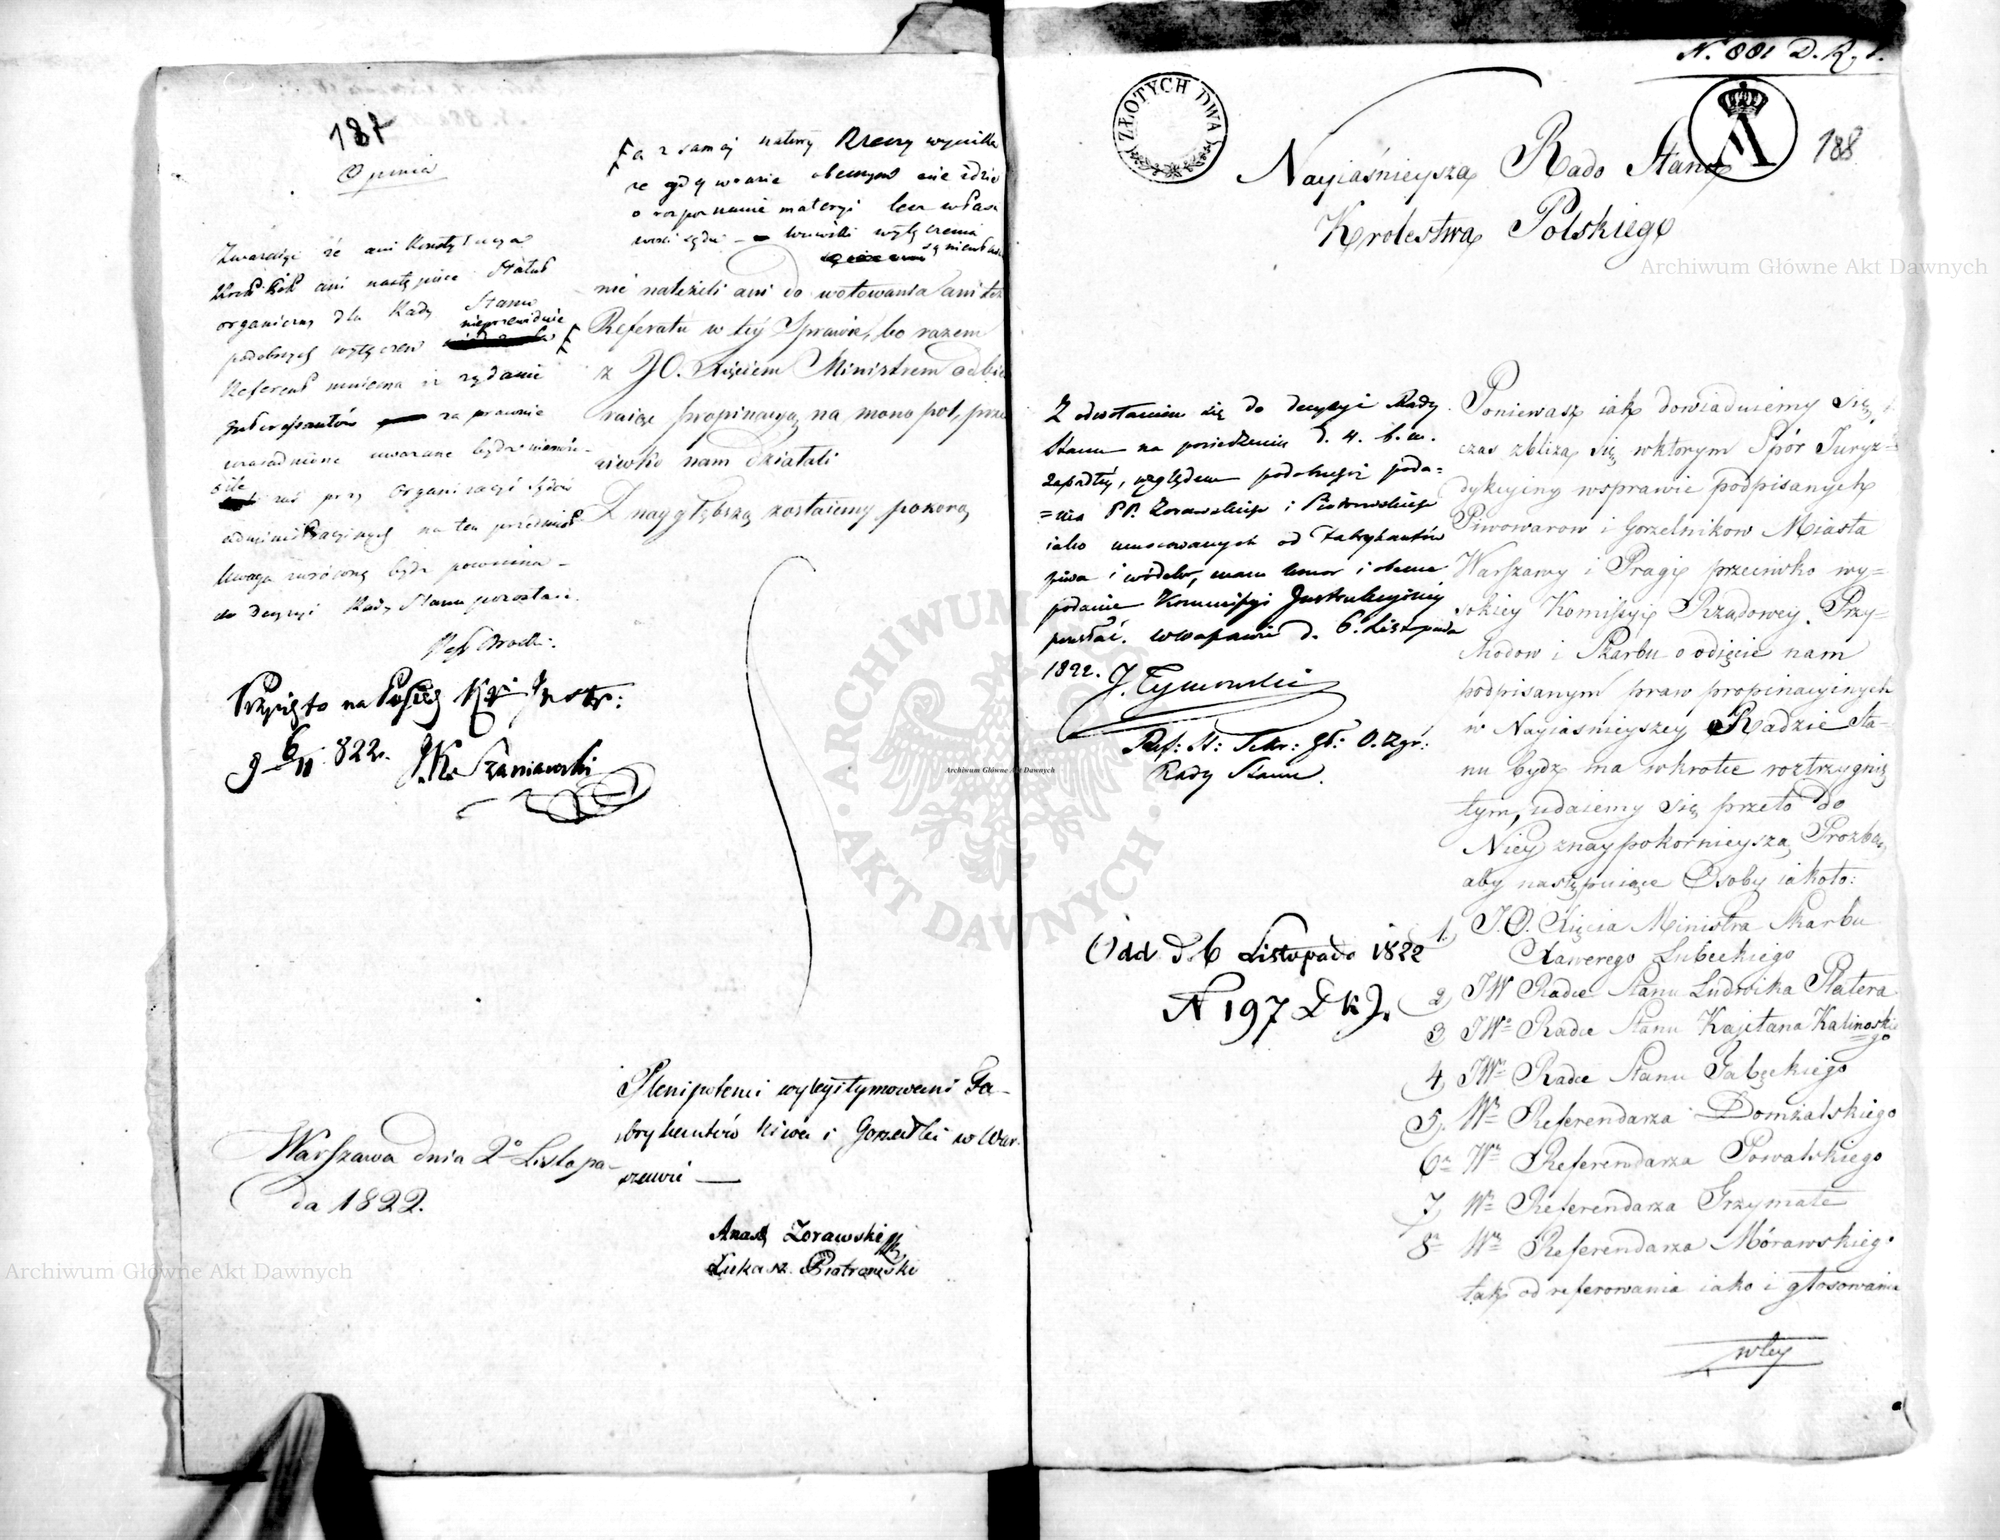 187
Opinia
Zważając że ani Konstytucya
ani następnie Statut
organiczny dla Rady Stanu
nieprzewidzie
podobnych wyłączeń
Referent mniema iż żądanie
za prawnie
uzasadnione uważane będź niemoże
zaś przy Organizacyi Sądów
administracyinych na ten przedmiot
Uwaga zwrócona bydź powinna –
do decyzyi Rady Stanu pozostaie.
Przyięto na Posiedz
9 6/11 822. J.K. Szaniawski
Warszawa dnia 2º Listopa-
da 1822.
a z samey natury Rzeczy wynika
że gdy w obecnym nie idzie
o rozpoznanie materyi lecz
wnioski wyłączenia
są
nie należeli ani do wotowania ani też
Referatu w tey Sprawie, bo razem
z JO. Xięciem Ministrem odbie
raiąc propinacyą na monopol, prze
ciwko nam działali
Z naygłębszą zostaiemy pokorą
Plenipotenci wylegitymowani Fa-
brykantów Piwa i Gorzałki w War-
szawie —
Żorawski
Łukasz Piotrowski
N. 881 D. R. S.
ZŁOTYCH DWA
188
Nayiaśnieysza Rado Stanu
Krolestwa Polskiego
Z odwołaniem się do decyzyi Rady
Stanu na posiedzeniu d. 4. b. m.
zapadłey, względem podobnegoż poda=
=nia PP. Żorawskiego i Piotrowskiego
iako umocowanych od Fabrykantów
piwa i wódek, mam honor i obecne
podanie Kommissyi Instrukcyiney
przesłać. w Warszawie d. 6. Listopada
1822. J. Tymowski
Ref: St: Sekr: Gł: O. Zgr:
Rady Stanu.
Odd d. 6 Listopada 1822
N 197 D K J.
Poniewasz iak dowiaduiemy się,
czas zbliża się w ktorym Spór Juryz=
dykcyiny w sprawie podpisanych
Piwowarow i Gorzelnikow Miasta
Warszawy i Pragi przeciwko wy=
sokiey Komissyi Rządowey Przy=
chodow i Skarbu o odięcie nam
podpisanym praw propinacyinych
w Nayiaśnieyszey Radzie Sta-
nu bydz ma wkrotce roztrzygnię
tym, udaiemy się przeto do
Niey z naypokornieyszą Prozbą,
aby następuiące Osoby iakoto:
1. J.O. Xięcia Ministra Skarbu
Xawerego Lubeckiego
2, JW Radce Stanu Ludwika Platera
3 JWº Radce Stanu Kajetana Kalinoskie
go
4, JWº Radce Stanu Gąbeckiego
5, Wº Referendarza Domżalskiego
6 Wº Referendarza Powalskiego
7, Wº Referendarza Grzymałe
8 Wº Referendarza Mórawskiego
tak od referowania iako i głosowania
w tey
Archiwum Główne Akt Dawnych
Archiwum Główne Akt Dawnych
Archiwum Główne Akt Dawnych
ARCHIWUM GŁÓWNE AKT DAWNYCH